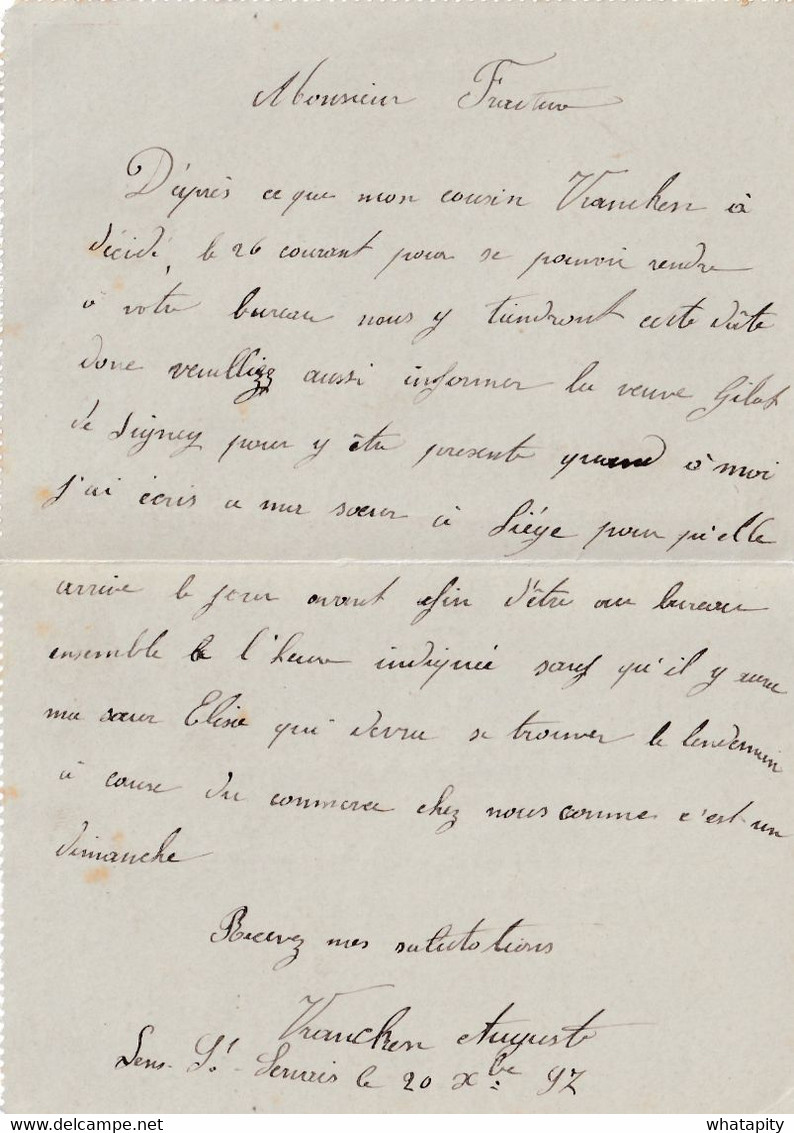 Monsieur
D'après ce que mon cousin Vrancken à
décidé, le 26 courant pour se pouvoir rendre
à votre bureau nous y tiendront cette dâte
donc veuillez aussi informer la veuve Gilot
de Ligney pour y être presente quand à moi
j'ai écris a ma soeur à Liége pour qu'elle
arrive le jour avant afin d'être au bureau
ensemble à l'heure indiquée sauf qu'il y aura
ma sœur Elise qui devra se trouver le lendemain
à cause du commerce chez nous comme c'est un
dimanche
Recevez mes salutations
Vrancken Auguste
Lens-St-Servais le 20 Xbe 97
whatapity